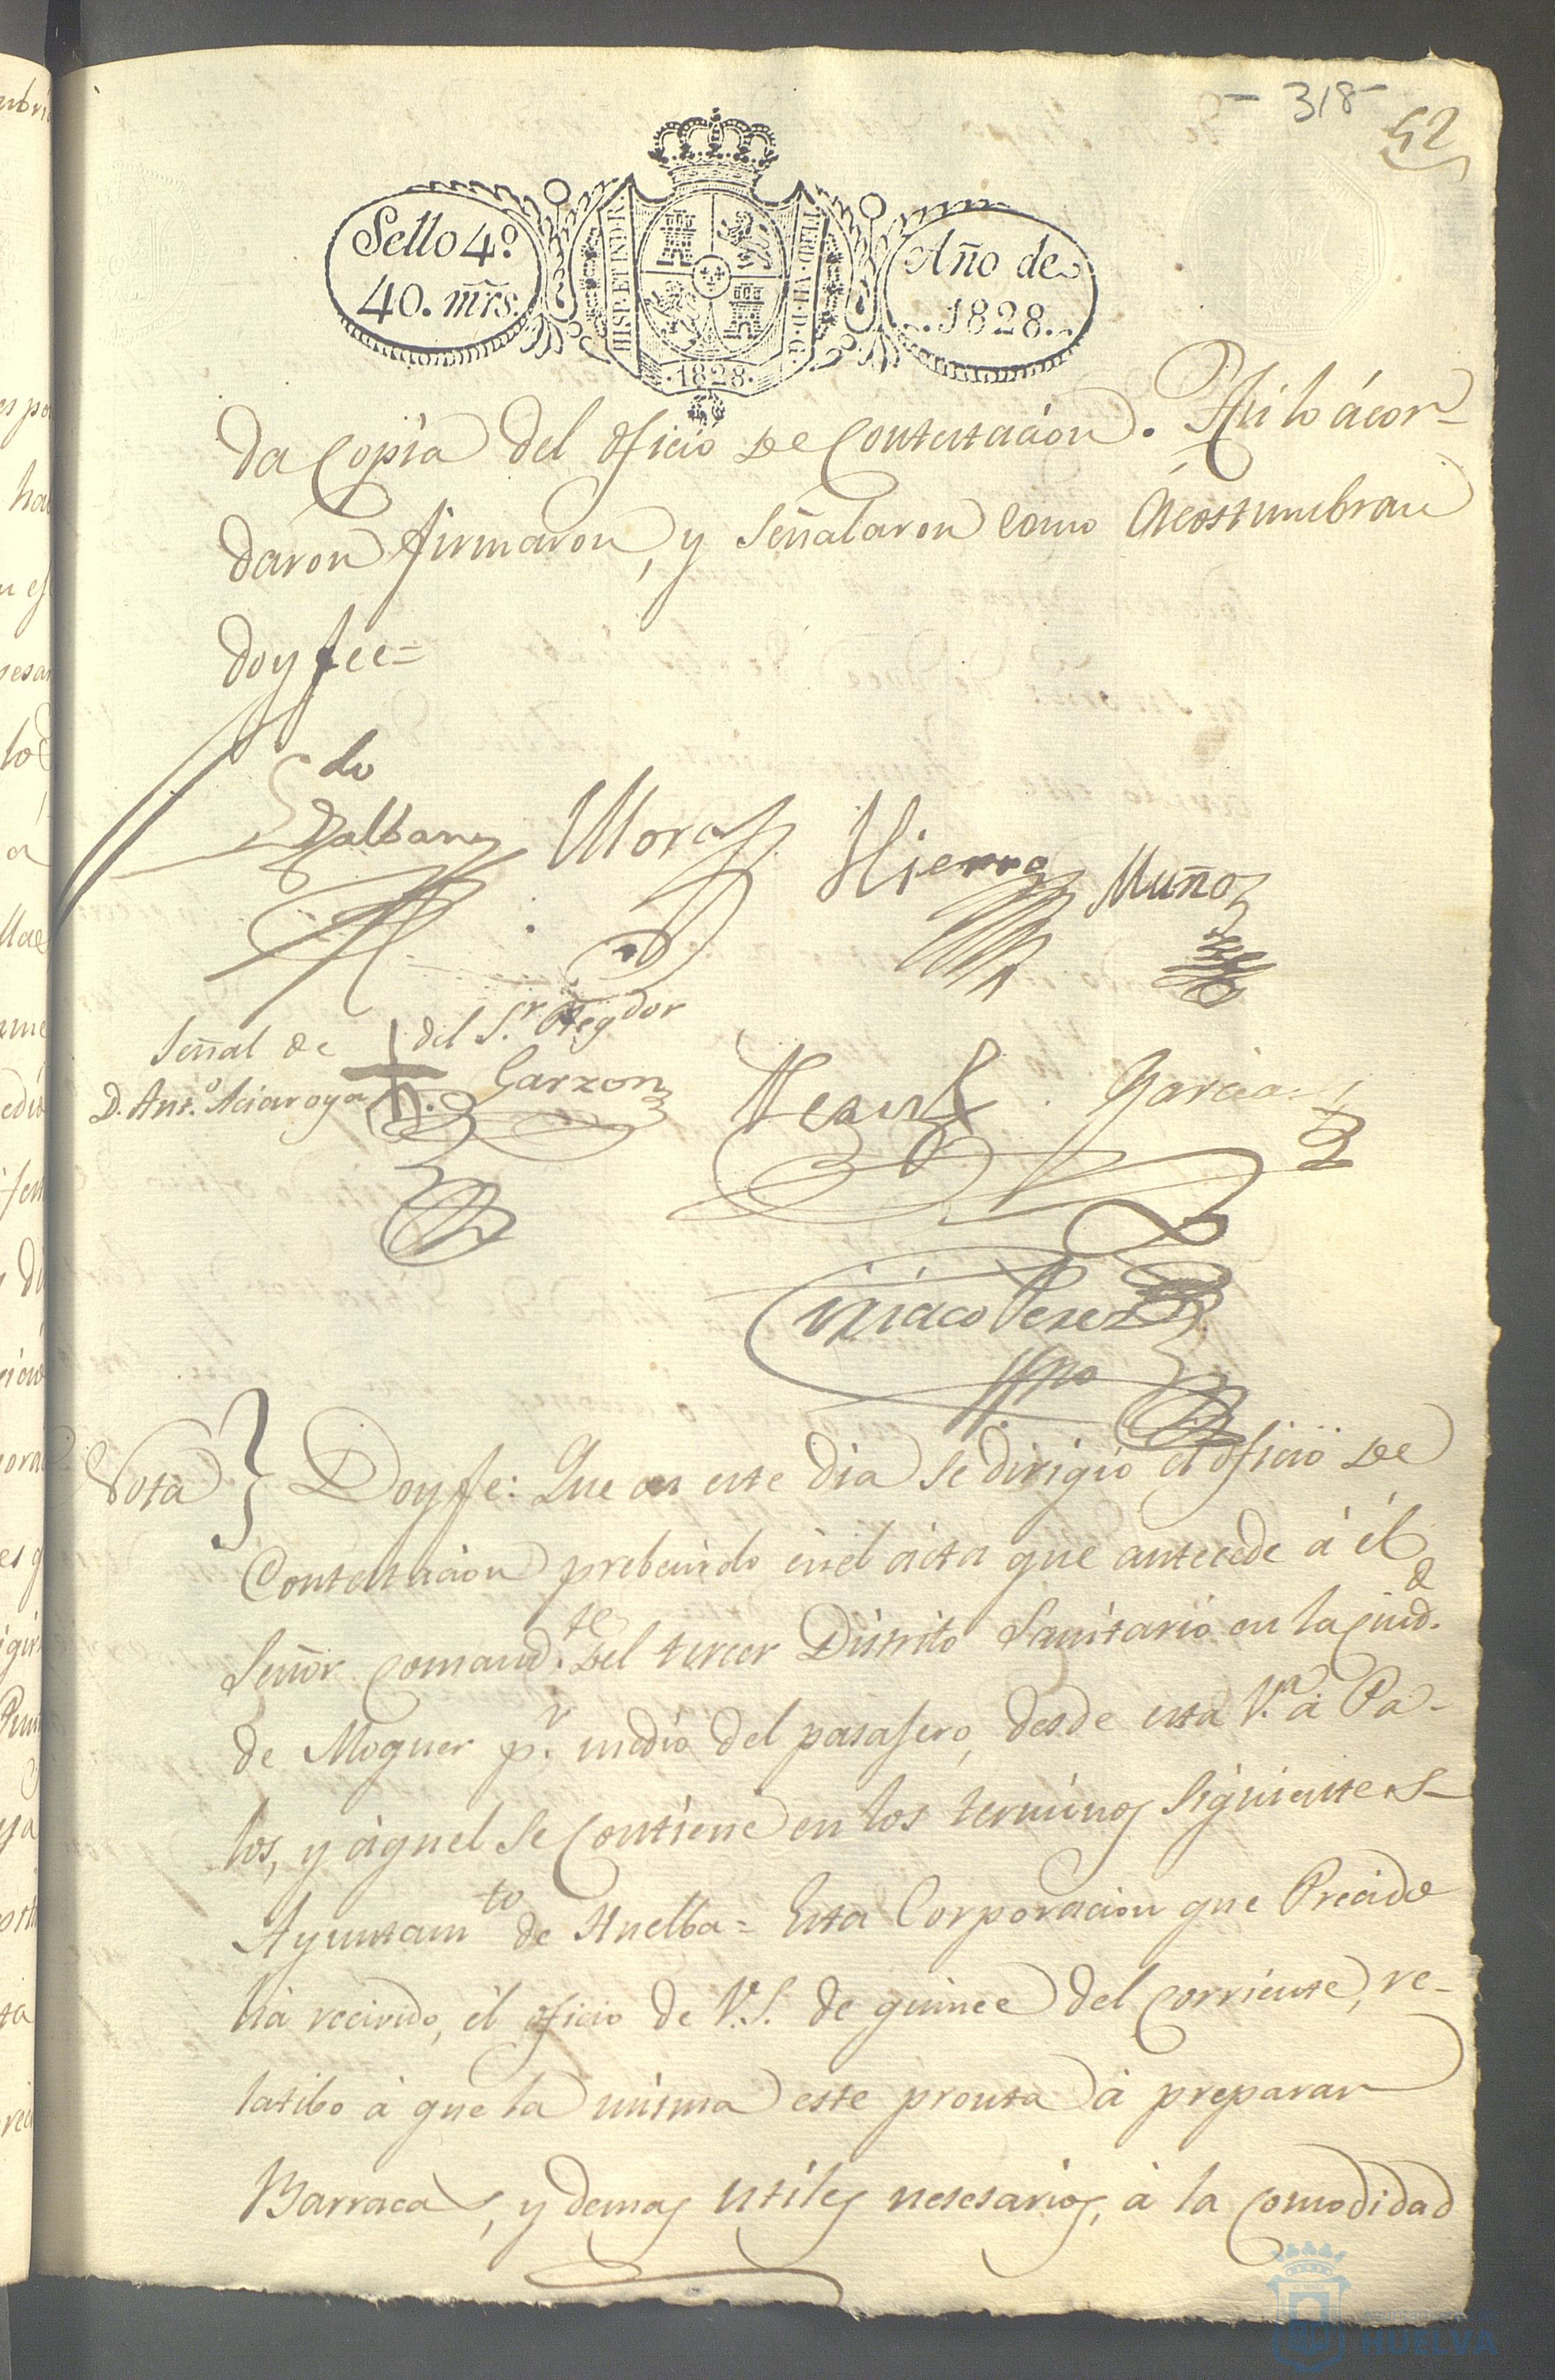 - 318 -
52
Sello 4º.
40. mrs.
HISP. ET IND. R.
FERD. VII. D. G.
·1828·
Año de
..1828..
da Copia del oficio de Contestacion. Asi lo ácor-
daron firmaron, y señalaron como Acostumbran
doy fee=
Ldo
Galbans Mora Hierro Muñoz
Señal de + del Sr. Regdor
D. Anto. Garzon
Garcia
Ciriaco Perez
Ssno
Nota } Doy fe: Que en este dia se dirigió el oficio de
Contestacion prebenido en el acta que antecede á él
Señor Comandte. del tercer Distrito Sanitario en la Ciudd.
de Moguer pr. medio del pasajero, desde esta Va. á Pa-
los, y áquel se Contiene en los terminos siguientes-
Ayuntamto de Huelba= Esta Corporacion que Precido
há recivido, él oficio de V.S. de quince del Corriente, re-
latibo á que la misma este pronta á preparar
Barraca, y demas utiles nesesarios, á la Comodidad
HUELVA